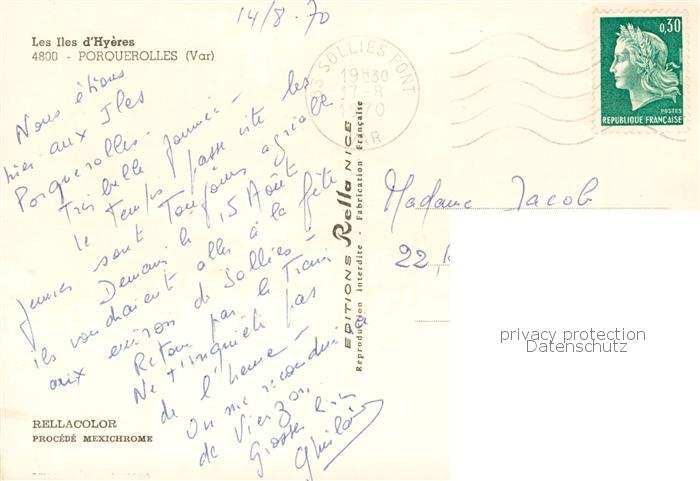 14/8-70
Les Iles d'Hyères
4800 - PORQUEROLLES (Var)
Nous étions
hier aux Iles
Porquerolles.
Très belle journée -
le temps passe vite les
jeunes sont toujours agréable
Demain le 15 Août
ils voudraient aller à la fête
aux environ de Solliès -
Retour par le Train
Ne t'inquiète pas
de l'heure -
On me reconduira
de Vierzon.
Grosses
RELLACOLOR
PROCÉDÉ MEXICHROME
EDITIONS Rella NICE
Reproduction interdite - Fabrication Française
83 SOLLIES PONT
19H30
17-8
1970
VAR
0,30
POSTES
REPUBLIQUE FRANÇAISE
Madame Jacob
22,
privacy protection
Datenschutz